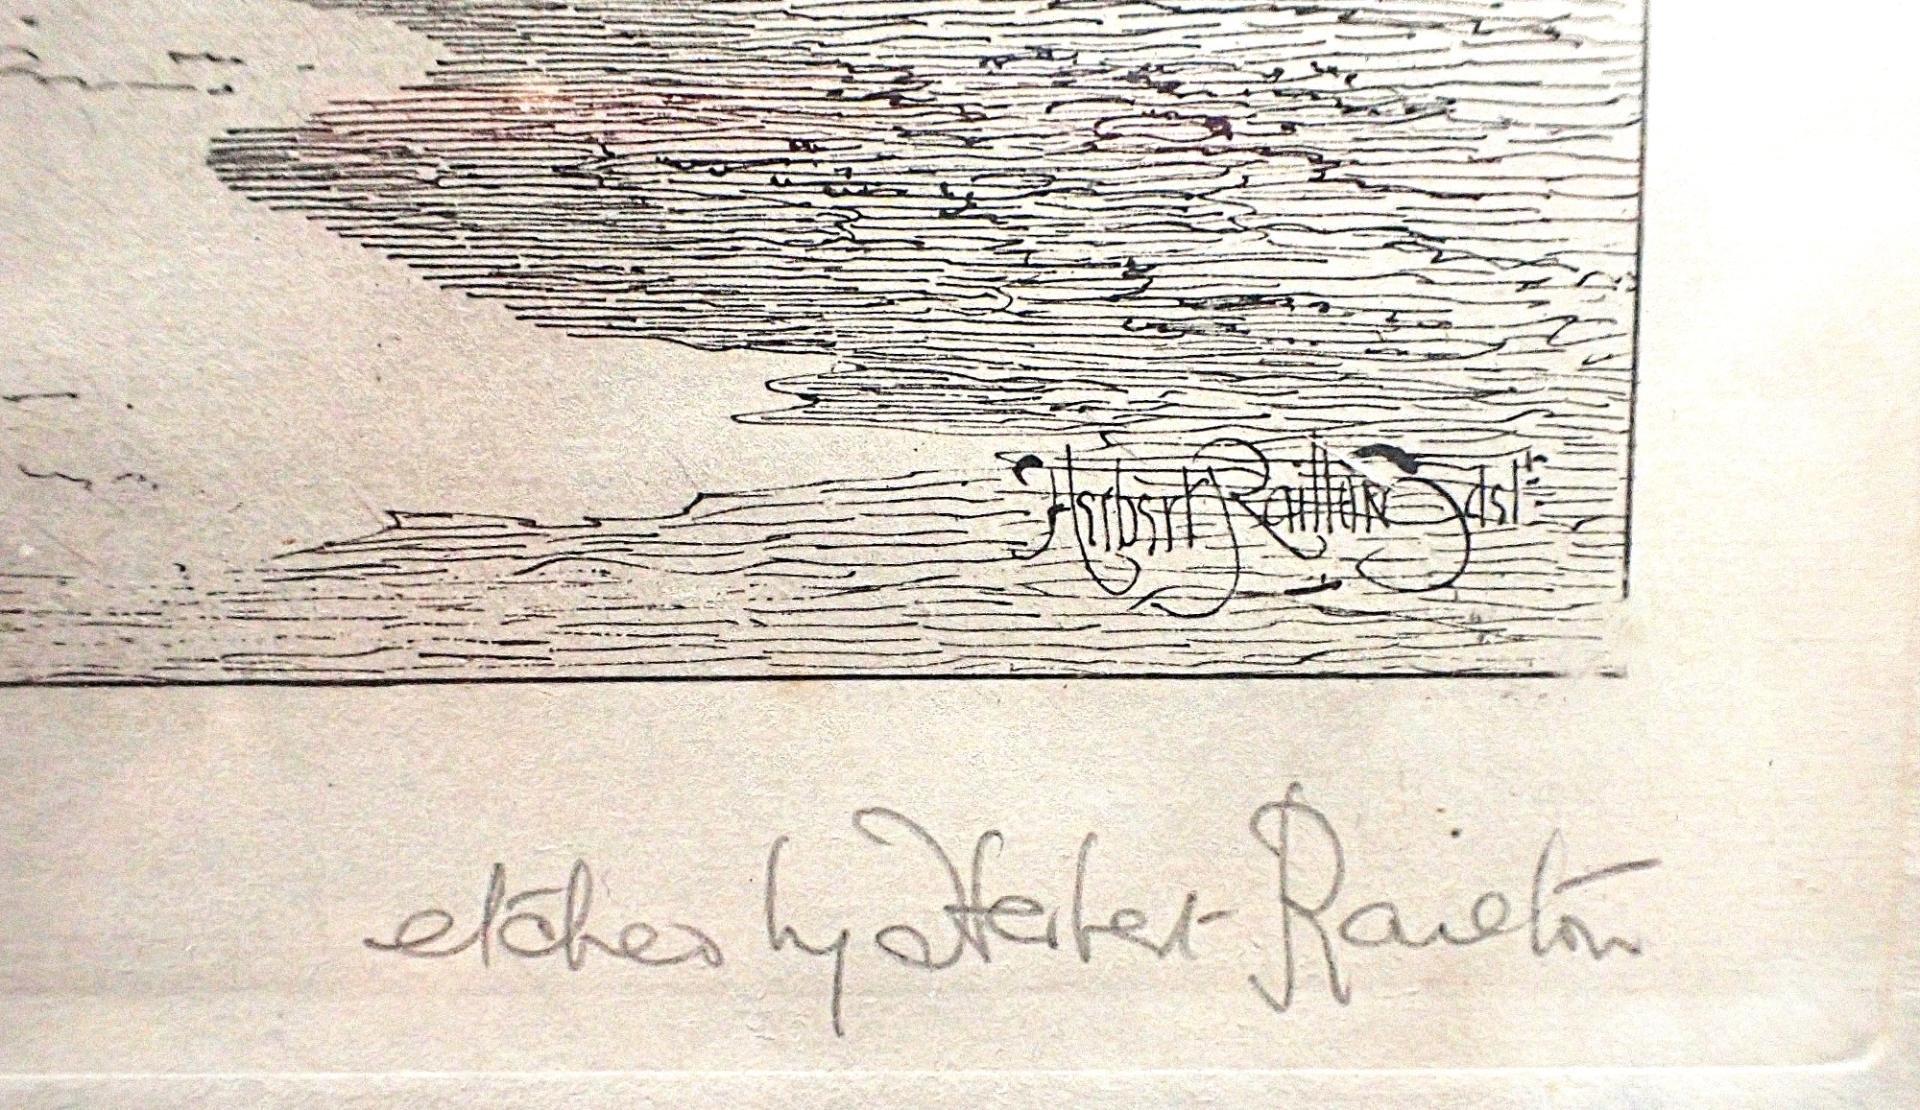 Herbert Railton
etched by Herbert Railton